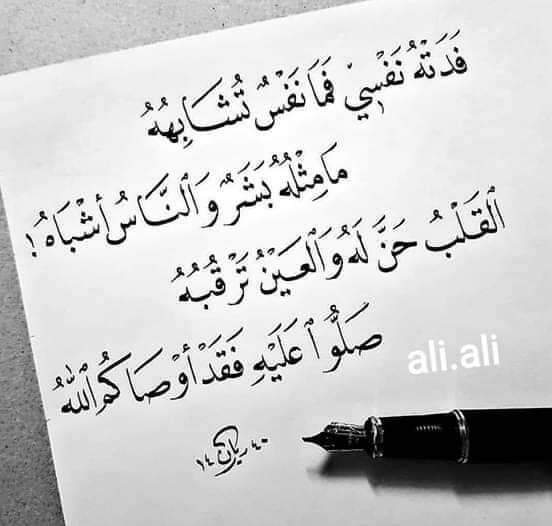 فَدَتْهُ نَفْسِي فَمَا نَفْسٌ تُشَابِهُهُ
مَا مِثْلُهُ بَشَرٌ وَٱلنَّاسُ أَشْبَاهُ!
ٱلْقَلْبُ حَنَّ لَهُ وَٱلْعَيْنُ تَرْقُبُهُ
صَلُّوا عَلَيْهِ فَقَدْ أَوْصَاكُمُ ٱللَّهُ
ali.ali